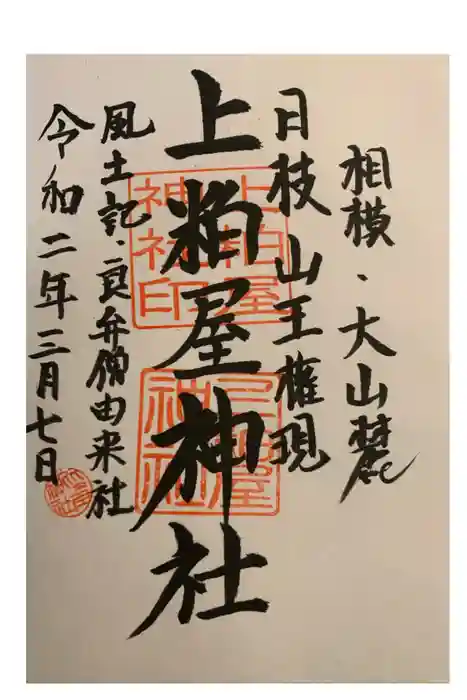 相模・大山麓
日枝山王権現
上粕屋神社
風土記・良弁僧由来社
令和二年三月七日
上粕屋
神社印